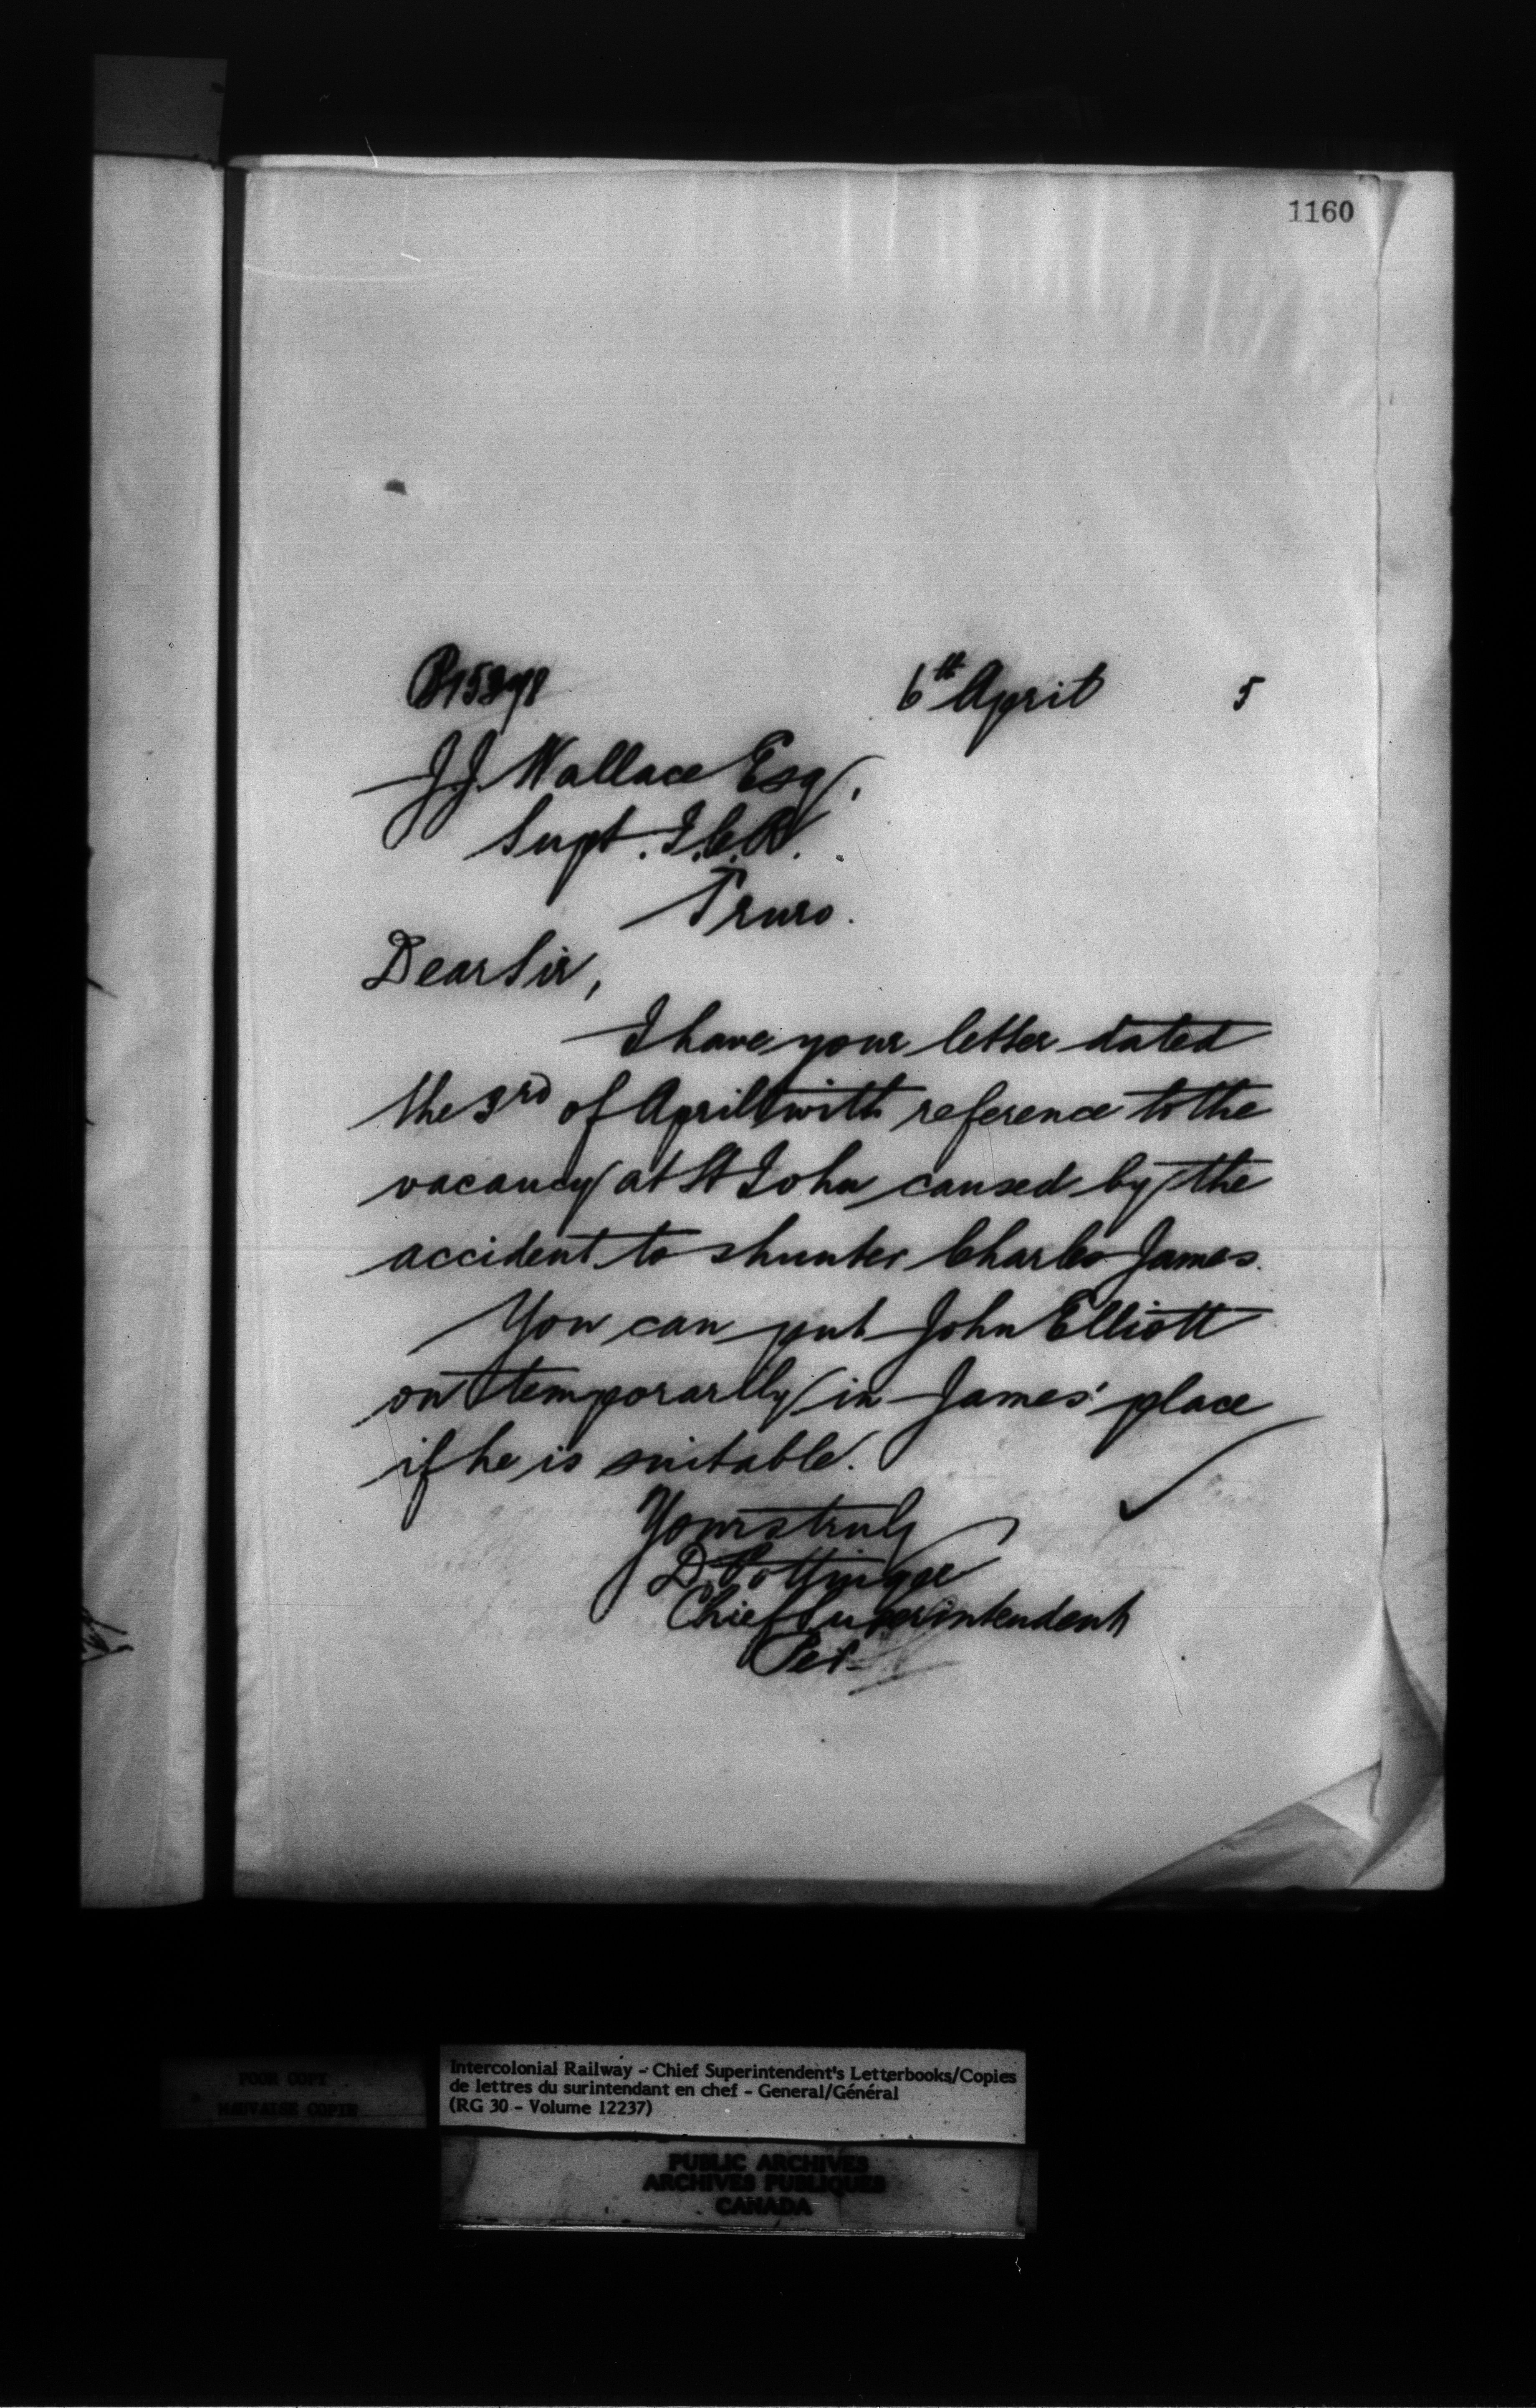 1160
6th April 5
J.J. Wallace Esq,
Supt. I.C.R.
Truro.
Dear Sir,
I have your letter dated
the 3rd of April with reference to the
vacancy at St John caused by the
accident to shunter Charles James.
You can put John Elliott
on temporarlly in James' place
if he is suitable.
Yours truly
D. Pottinger
Chief Superintendent
Per
POOR COPY
MAUVAISE COPIE
Intercolonial Railway - Chief Superintendent's Letterbooks/Copies
de lettres du surintendant en chef - General/Général
(RG 30 - Volume 12237)
PUBLIC ARCHIVES
ARCHIVES PUBLIQUES
CANADA